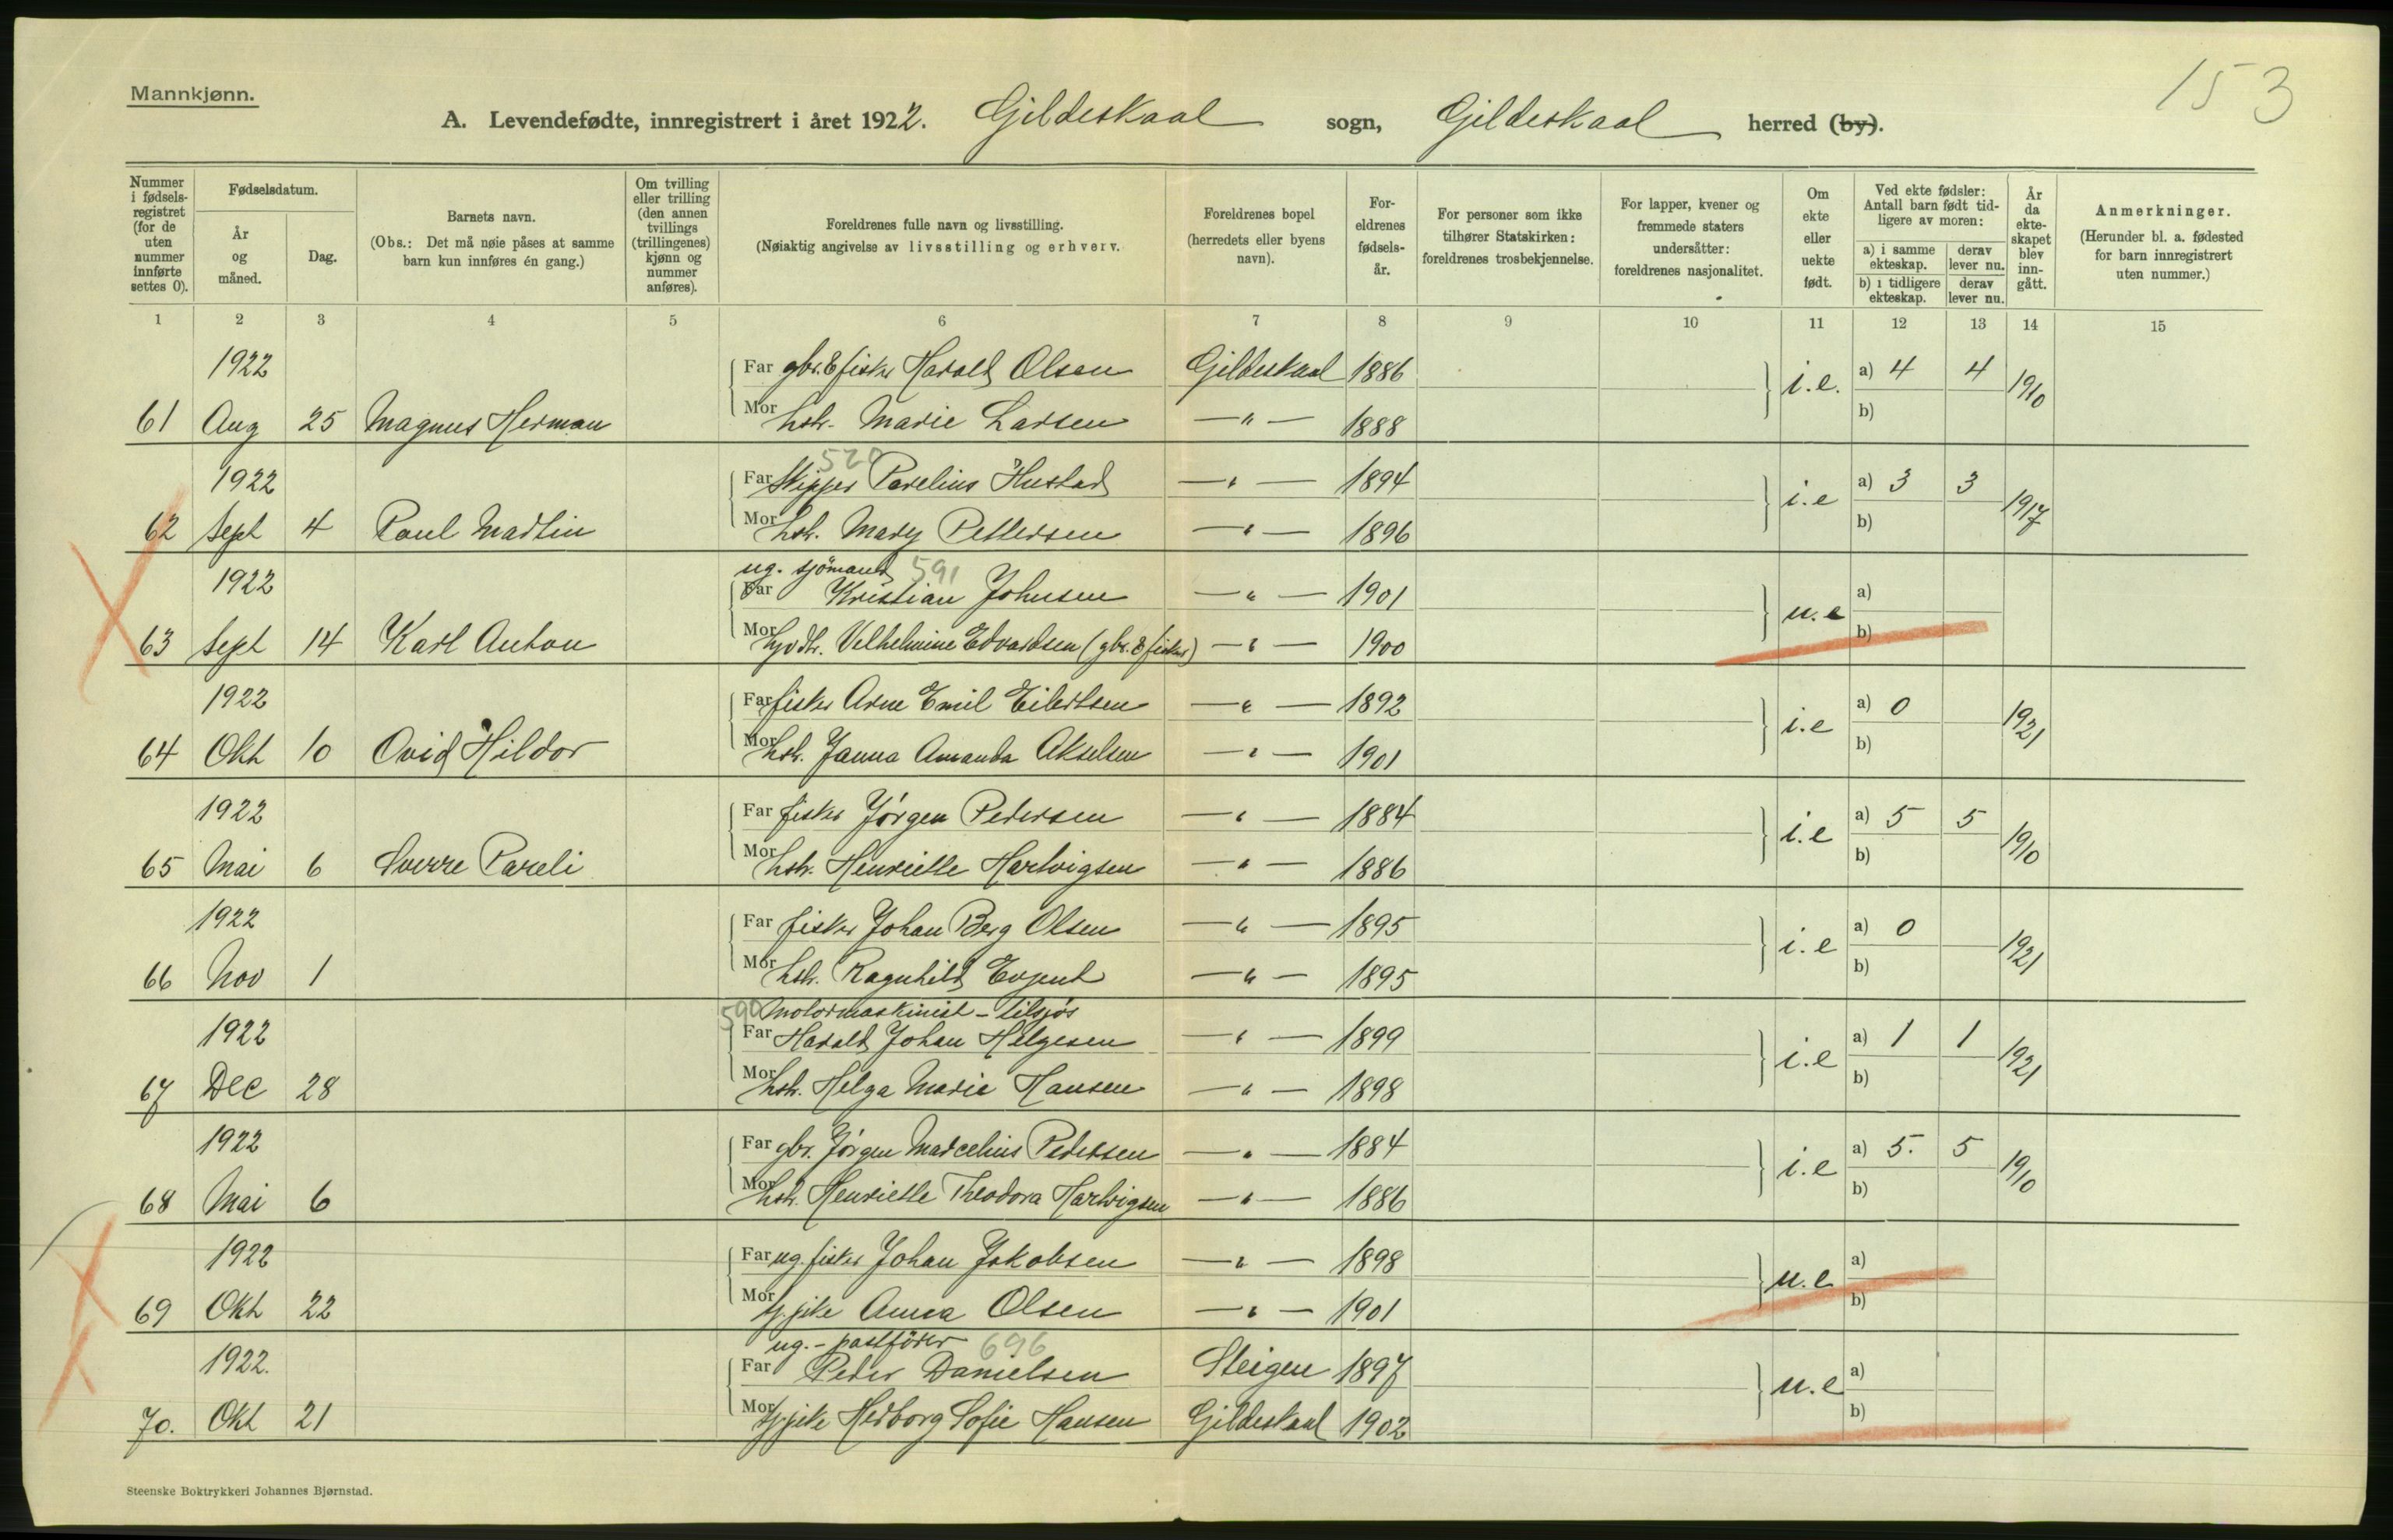 153
Mannkjønn.
A. Levendefødte, innregistrert i året 1922. Gildeskaal sogn, Gildeskaal herred (by).
Nummer i fødsels-registret (for de uten nummer innførte settes 0).
Fødselsdatum.
År og måned.
Dag.
Barnets navn.
(Obs.: Det må nøie påses at samme barn kun innføres én gang.)
Om tvilling eller trilling (den annen tvillings (trillingenes) kjønn og nummer anføres).
Foreldrenes fulle navn og livsstilling.
(Nøiaktig angivelse av livsstilling og erhverv.
Foreldrenes bopel (herredets eller byens navn).
For-eldrenes fødsels-år.
For personer som ikke tilhører Statskirken: foreldrenes trosbekjennelse.
For lapper, kvener og fremmede staters undersåtter: foreldrenes nasjonalitet.
Om ekte eller uekte født.
Ved ekte fødsler: Antall barn født tid-ligere av moren:
a) i samme ekteskap.
derav lever nu.
b) i tidligere ekteskap.
derav lever nu.
År da ekte-skapet blev inn-gått.
Anmerkninger.
(Herunder bl. a. fødested for barn innregistrert uten nummer.)
1 2 3 4 5 6 7 8 9 10 11 12 13 14 15
1922 Far gbr. & fisker Harald Olsen Gildeskaal 1886 i.e. a) 4 4 1910
61 Aug 25 Magnus Herman Mor hstr. Marie Larsen —"— 1888 b)
520
1922 Far Skipper Parelius Hustad —"— 1894 i.e a) 3 3 1917
62 Sept 4 Paul Martin Mor hstr. Mary Pettersen —"— 1896 b)
ug. sjömand 591
1922 Far Kristian Johnsen —"— 1901 u.e a)
63 Sept 14 Karl Anton Mor Vilhelmine Edvardsen (gbr. & fisker) —"— 1900 b)
1922 Far fisker Arne Emil Eilertsen —"— 1892 i.e a) 0 1921
64 Okt 10 Ovid Hildor Mor hstr. Janna Amanda Akselsen —"— 1901 b)
1922 Far fisker Jörgen Pedersen —"— 1884 i.e a) 5 5 1910
65 Mai 6 Sverre Pareli Mor hstr. Henriette Hartvigsen —"— 1886 b)
1922 Far fisker Johan Berg Olsen —"— 1895 i.e a) 0 1921
66 Nov 1 Mor hstr. Ragnhild Evjent —"— 1895 b)
590 Motormaskinist - tilsjøs
1922 Far Harald Johan Helgesen —"— 1899 i.e a) 1 1 1921
67 Dec 28 Mor hstr. Helga Marie Hansen —"— 1898 b)
1922 Far gbr. Jörgen Marcelius Pedersen —"— 1884 i.e a) 5. 5 1910
68 Mai 6 Mor hstr. Henriette Theodora Hartvigsen —"— 1886 b)
1922 Far ug. fisker Johan Jakobsen —"— 1898 u.e a)
69 Okt 22 Mor Anna Olsen —"— 1901 b)
ug. - postförer 696
1922. Far Peder Danielsen Steigen 1897 u.e a)
70. Okt 21 Mor Hedborg Sofie Hansen Gildeskaal 1902 b)
Steenske Boktrykkeri Johannes Bjørnstad.